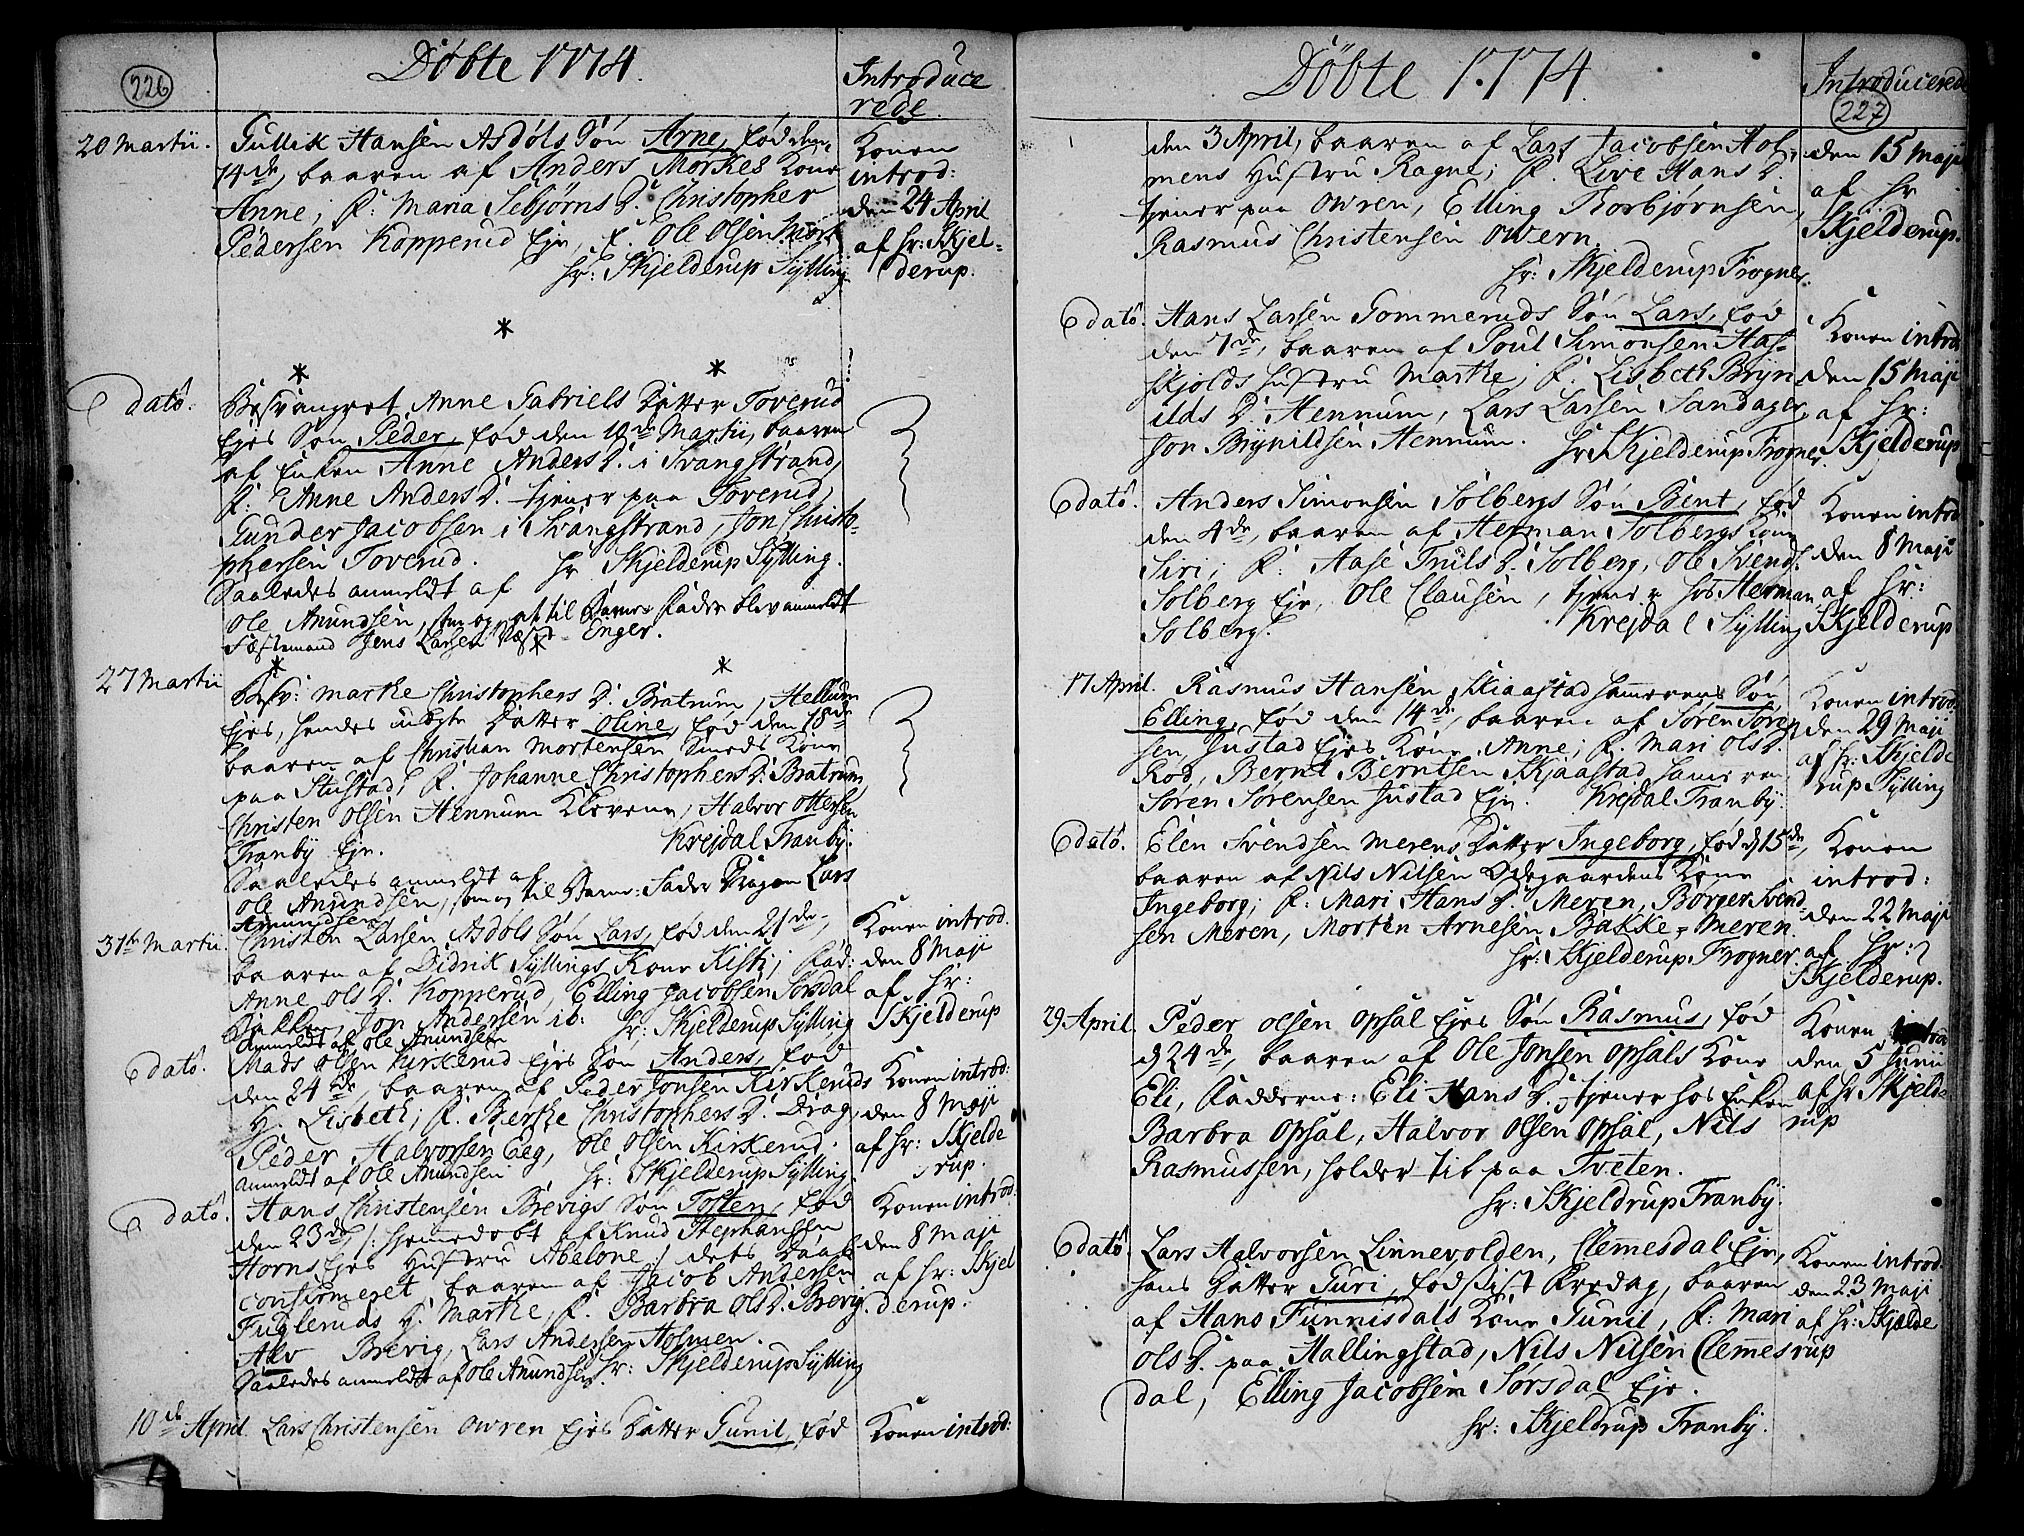 226
Döbte 1774.
Introduce
rede.
20 Martii.
Gullik Hansen Asdöls Sön Arne, föd den
14de, baaren af Anders Mörkes Kone
Anne; F: Maria Sebjörns D. Christopher
Pedersen Kopperud Eje, F. Ole Olsen Mörk
hr: Skjelderup Sylling
Konen
introd:
den 24 April
af hr: Skjel-
derup.
dato.
Besvangret Anne Gabriels Datter Toverud
Ejes Sön Peder, föd den 10de Martii, baaren
af Enken Anne Anders D. i Svangstrand,
F: Anne Anders D. tjener paa Toverud,
Gunder Jacobsen i Svangstrand, Jon Christo-
phersen Toverud. hr Skjelderup Sylling.
Saaledes anmeldt af
Ole Amundsen, som og at til Barne Fader blev anmeldt
Jens Larsen Enger.
27 Martii
Besv: Marthe Christophers D. Bratrum, Hellum
Ejes, hendes uægte Datter Oline, föd den 18de
baaren af Christian Mortensen Smeds Kone
paa Stustad, F. Johanne Christophers D. Bratrum
Christen Olsen Hennum Klevene, Halvor Ottersen
Tranby Eje. Krejdal Tranby.
Saaledes anmeldt af
Ole Amundsen, som og til Barne: Fader Dragon Lars
Amundsen
31te Martii
Christen Larsen Asdöls Sön Lars, föd den 21de
baaren af Didrik Syllings Kone Kisti; Fad:
Anne Ols D. Kopperud, Elling Jacobsen Sörsdal
Bakken, Jon Andersen ib: hr: Skjelderup Sylling
Anmeldt af Ole Amundsen
Konen introd.
den 8 Maji
af hr:
Skjelderup
dato.
Mads Olsen Kirkerud Ejes Sön Anders, föd
den 24de, baaren af Peder Jonsen Kirkeruds
H. Lisbeth; F. Berthe Christophers D. Drag,
Peder Halvorsen Eeg, Ole Olsen Kirkerud.
Anmeldt af Ole Amundsen hr: Skjelderup Sylling
Konen introd:
den 8 Maji
af hr: Skjelde
rup.
dato.
Hans Christensen Brevigs Sön Tosten, föd
den 23de /: hjemedöbt af Knud Stephansen
Horns Ejes Hustru Abelone :/ dets Daab
confirmeret, baaren af Jacob Andersen
Fugleruds H. Marthe, F. Barbra Ols D. Brevig
Alv Brevig, Lars Andersen Holmen.
Saaledes anmeldt af Ole Amundsen hr: Skjelderup Sylling
Konen introd:
den 8 Maji
af hr: Skjel
derup.
10de April
Lars Christensen Owren Ejes Datter Gunil, föd
Konen introd:
Döbte 1774.
Introducerede
227
den 3 April, baaren af Lars Jacobsen Hol-
mens Hustru Ragne; F. Live Hans D.
tjener paa Owren, Elling Torbjörnsen,
Rasmus Christensen Owern.
hr: Skjelderup Frogner.
den 15 Maji
af hr
Skjelderup.
dato.
Hans Larsen Gommeruds Sön Lars, föd
den 7de, baaren af Poul Simonsen Has-
skjolds Hustru Marthe; F. Lisbeth Bryn
ilds D. Hennum, Lars Larsen Sandager,
Jon Brynildsen Hennum. hr Skjelderup Frogner
Konen introd
den 15 Maji
af hr:
Skjelderup
dato.
Anders Simonsen Solbergs Sön Bent, föd
den 4de, baaren af Herman Solbergs Kone
Siri; F. Aase Truls D. Solberg, Ole Svends.
Solberg Eje, Ole Clausen, tjener hos Herman
Solberg. Krejdal Sylling
Konen introd
den 8 Maji
af hr:
Skjelderup
17 April.
Rasmus Hansen Skiaastad Sameiens Sön
Elling, föd den 14de, baaren af Sören Sören
sen Justad Ejes Kone Anne; F. Mari Ols D.
Röd, Bernt Berntsen Skjaastad
Sören Sörensen Justad Eje. Krejdal Tranby.
Konen introd.
den 29 Maji
af hr: Skjelde
rup Sylling
dato.
Elen Svendsen Merens Datter Ingeborg, föd d 15de,
baaren af Nils Nilsen Ödegaardens Kone
Ingeborg; F. Mari Hans D. Meren, Börger Svend
sen Meren, Morten Arnesen Bakke-Meren.
hr: Skjelderup Frogner
Konen
introd:
den 22 Maji
af hr:
Skjelderup.
29 April.
Peder Olsen Opsal Ejes Sön Rasmus, föd
d 24de, baaren af Ole Jonsen Opsals Kone
Eli, Fadderne: Eli Hans D. tjener hos Enken
Barbra Opsal, Halvor Olsen Opsal, Nils
Rasmussen, holder til paa Tveten.
hr: Skjeldrup Tranby
Konen introd
den 5 Junii
af hr Skjelde
rup
dato
Lars Halvorsen Linnevolden, Clemesdal Eje,
hans Datter Guri, föd sidst Fredag, baaren
af Hans Funnisdals Kone Gunil, F: Mari
Ols D. paa Hallingstad, Nils Nilsen Clemes
dal, Elling Jacobsen Sörsdal Eje.
hr: Skjeldrup Tranby.
Konen introd:
den 23 Maji
af hr: Skjælde
rup